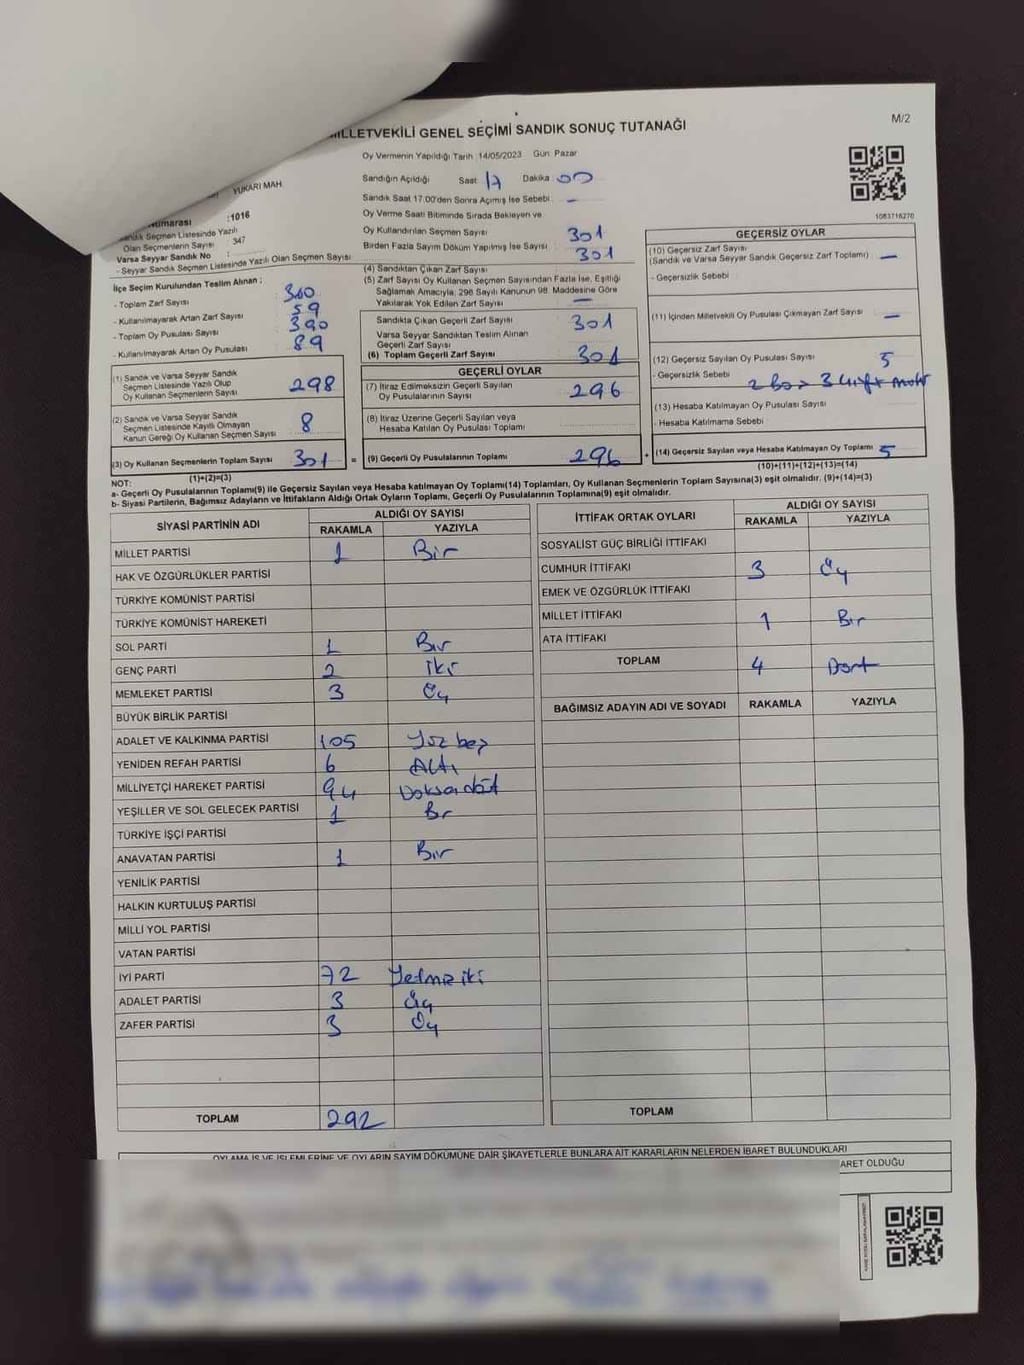 MİLLETVEKİLİ GENEL SEÇİMİ SANDIK SONUÇ TUTANAĞI
M/2
Oy Vermenin Yapıldığı Tarih 14/05/2023 Gün: Pazar
YUKARI MAH.
Sandığın Açıldığı Saat 17 Dakika 00
Sandık Saat 17.00'den Sonra Açımış İse Sebebi: –
1063716270
:1016
Oy Verme Saati Bitiminde Sırada Bekleyen ve
Oy Kullandırılan Seçmen Sayısı 301
Sandık Seçmen Listesinde Yazılı
Olan Seçmenlerin Sayısı : 347
Birden Fazla Sayım Döküm Yapılmış İse Sayısı 301
Varsa Seyyar Sandık No :
- Seyyar Sandık Seçmen Listesinde Yazılı Olan Seçmen Sayısı
İlçe Seçim Kurulundan Teslim Alınan :
- Toplam Zarf Sayısı 360
- Kullanılmayarak Artan Zarf Sayısı 59
- Toplam Oy Pusulası Sayısı 390
- Kullanılmayarak Artan Oy Pusulası 89
(1) Sandık ve Varsa Seyyar Sandık
Seçmen Listesinde Yazılı Olup
Oy Kullanan Seçmenlerin Sayısı 298
(2) Sandık ve Varsa Seyyar Sandık
Seçmen Listesinde Kayıtlı Olmayan
Kanun Gereği Oy Kullanan Seçmen Sayısı 8
(3) Oy Kullanan Seçmenlerin Toplam Sayısı 301 =
(1)+(2)=(3)
(4) Sandıktan Çıkan Zarf Sayısı
(5) Zarf Sayısı Oy Kullanan Seçmen Sayısından Fazla İse, Eşitliği
Sağlamak Amacıyla, 298 Sayılı Kanunun 98. Maddesine Göre
Yakılarak Yok Edilen Zarf Sayısı –
Sandıkta Çıkan Geçerli Zarf Sayısı 301
Varsa Seyyar Sandıktan Teslim Alınan
Geçerli Zarf Sayısı
(6) Toplam Geçerli Zarf Sayısı 301
GEÇERLİ OYLAR
(7) İtiraz Edilmeksizin Geçerli Sayılan
Oy Pusulasının Sayısı 296
(8) İtiraz Üzerine Geçerli Sayılan veya
Hesaba Katılan Oy Pusulası Toplamı
(9) Geçerli Oy Pusulalarının Toplamı 296 +
GEÇERSİZ OYLAR
(10) Geçersiz Zarf Sayısı
(Sandık ve Varsa Seyyar Sandık Geçersiz Zarf Toplamı) –
- Geçersizlik Sebebi
(11) İçinden Milletvekili Oy Pusulası Çıkmayan Zarf Sayısı –
(12) Geçersiz Sayılan Oy Pusulası Sayısı 5
- Geçersizlik Sebebi 2 boş 3
(13) Hesaba Katılmayan Oy Pusulası Sayısı
- Hesaba Katılmama Sebebi
(14) Geçersiz Sayılan veya Hesaba Katılmayan Oy Toplamı 5
(10)+(11)+(12)+(13)=(14)
NOT:
a- Geçerli Oy Pusulalarının Toplamı(9) ile Geçersiz Sayılan veya Hesaba katılmayan Oy Toplamı(14) Toplamları, Oy Kullanan Seçmenlerin Toplam Sayısına(3) eşit olmalıdır. (9)+(14)=(3)
b- Siyasi Partilerin, Bağımsız Adayların ve İttifakların Aldığı Ortak Oyların Toplamı, Geçerli Oy Pusulalarının Toplamına(9) eşit olmalıdır.
SİYASİ PARTİNİN ADI ALDIĞI OY SAYISI
RAKAMLA YAZIYLA
MİLLET PARTİSİ 1 Bir
HAK VE ÖZGÜRLÜKLER PARTİSİ
TÜRKİYE KOMÜNİST PARTİSİ
TÜRKİYE KOMÜNİST HAREKETİ
SOL PARTİ 1 Bir
GENÇ PARTİ 2 iki
MEMLEKET PARTİSİ 3 Üç
BÜYÜK BİRLİK PARTİSİ
ADALET VE KALKINMA PARTİSİ 105 Yüz beş
YENİDEN REFAH PARTİSİ 6 Altı
MİLLİYETÇİ HAREKET PARTİSİ 94 Doksandört
YEŞİLLER VE SOL GELECEK PARTİSİ 1 Br
TÜRKİYE İŞÇİ PARTİSİ
ANAVATAN PARTİSİ 1 Bir
YENİLİK PARTİSİ
HALKIN KURTULUŞ PARTİSİ
MİLLİ YOL PARTİSİ
VATAN PARTİSİ
İYİ PARTİ 72 Yetmiş iki
ADALET PARTİSİ 3 Üç
ZAFER PARTİSİ 3 Üç
TOPLAM 292
İTTİFAK ORTAK OYLARI ALDIĞI OY SAYISI
RAKAMLA YAZIYLA
SOSYALİST GÜÇ BİRLİĞİ İTTİFAKI
CUMHUR İTTİFAKI 3 Üç
EMEK VE ÖZGÜRLÜK İTTİFAKI
MİLLET İTTİFAKI 1 Bir
ATA İTTİFAKI
TOPLAM 4 Dört
BAĞIMSIZ ADAYIN ADI VE SOYADI RAKAMLA YAZIYLA
TOPLAM
OYLAMA İŞ VE İŞLEMLERİNE VE OYLARIN SAYIM DÖKÜMÜNE DAİR ŞİKAYETLERLE BUNLARA AİT KARARLARIN NELERDEN İBARET BULUNDUKLARI
ARET OLDUĞU